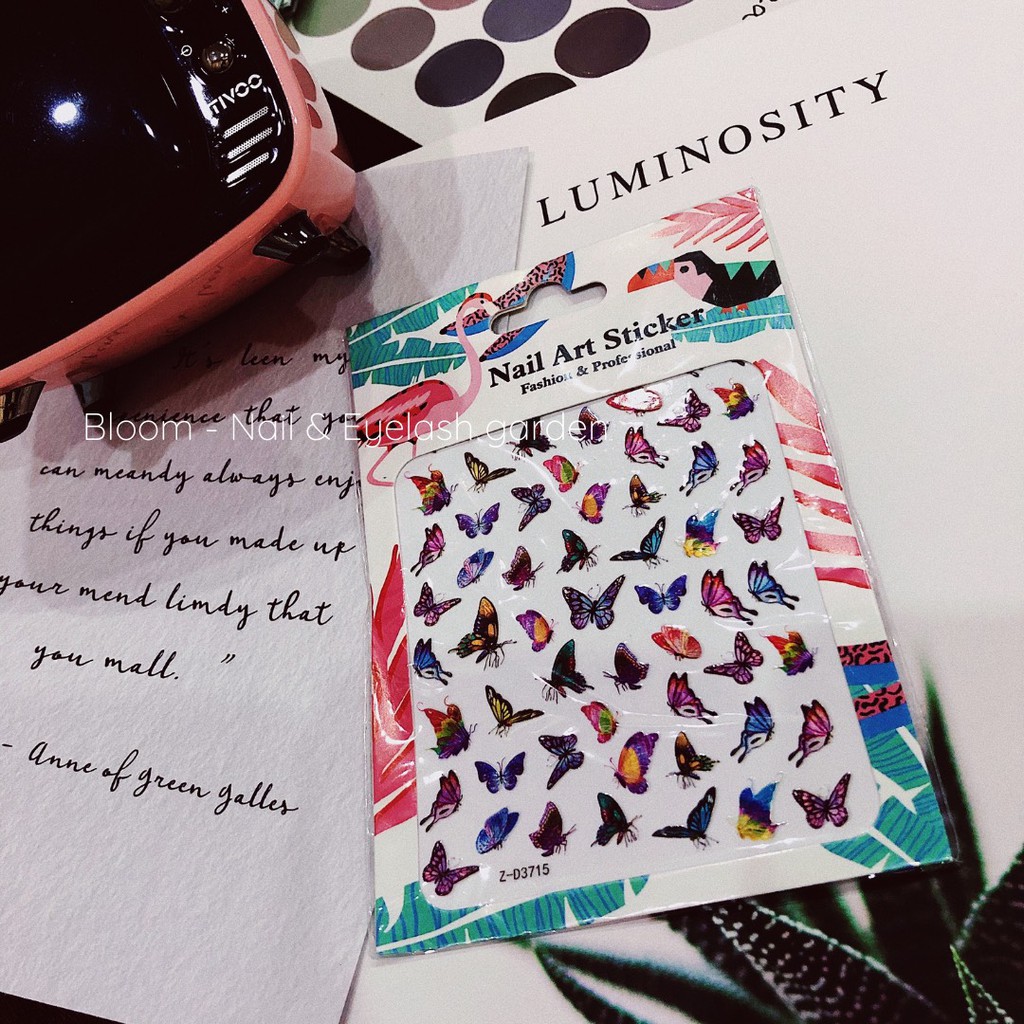 TIVOO
LUMINOSITY
Nail Art Sticker
Fashion & Professional
It's leen my
Bloom - Nail & Eyelash.garden
that yo
can meandy always enj
things if you made up
your mend limdy that
you mall. "
- Anne of green galles
Z-D3715